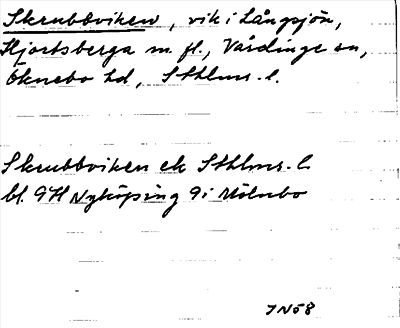 Skrubbviken, vik i Långsjön,
Hjortsberga m. fl., Vårdinge sn,
Öknebo hd, Sthlms. l.
Skrubbviken ek Sthlms. l
bl. 9H Nyköping 9i Mölnbo
JN58